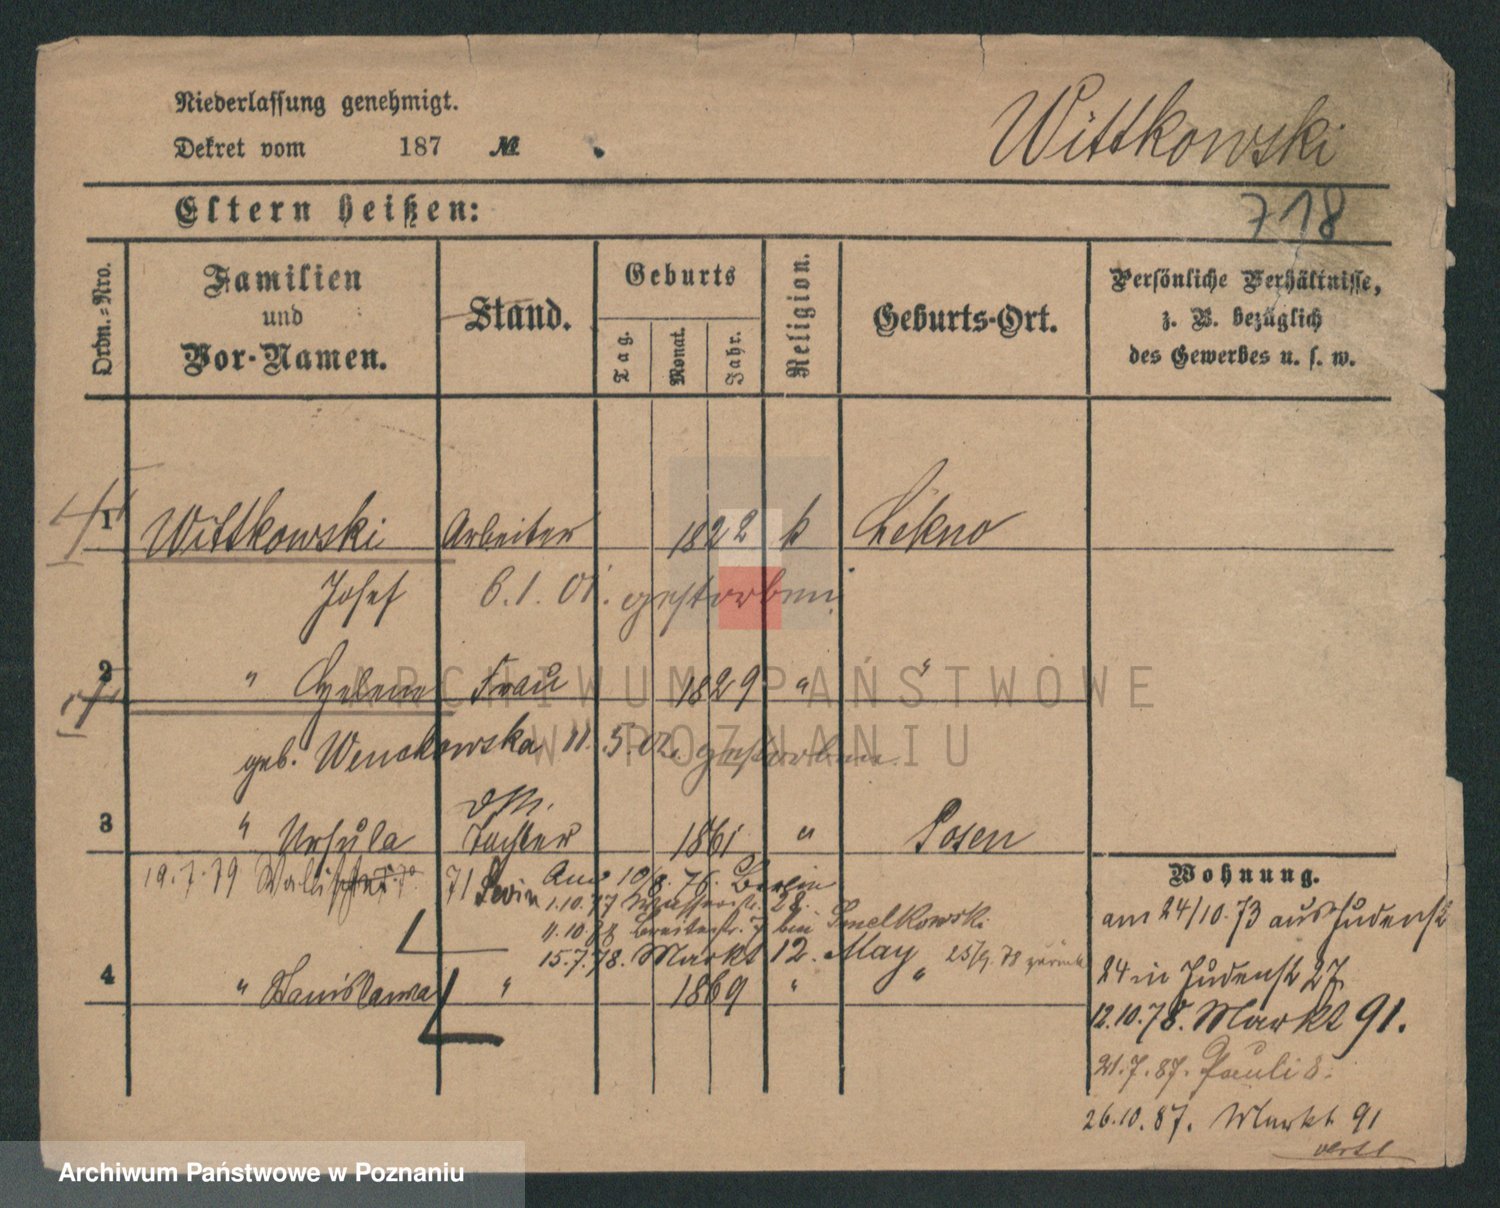 Niederlassung genehmigt.
Dekret vom 187 №
Wittkowski
Eltern heißen:
718
Ordn.-Nro.
Familien
und
Vor-Namen.
Stand.
Geburts
Tag.
Monat.
Jahr.
Religion.
Geburts-Ort.
Persönliche Verhältnisse,
z. B. bezüglich
des Gewerbes u. s. w.
1 Wittkowski Arbeiter 1822 k Lekno
Josef 6.1.01. gestorben
2 " Helene Frau 1829 " "
geb. Wenckowska 11.5.02. gestorben
3 " Ursula Tochter 1861 " Posen
19.7.79
71 Levin
Aus 10/8. 76. Berlin
1.10.77 Wasserstr. 28.
Breitestr. 7 bei Smelkowski
15.7.78. Markt 12. May 25/9. 78 zurück
4 " Stanislawa " 1869 " "
Wohnung.
am 24/10.73 aus Judenst
24 in Judenst 27.
12.10.78. Markt 91.
21.7.87. Pauli 8.
26.10.87. Markt 91
ARCHIWUM PAŃSTWOWE
W POZNANIU
Archiwum Państwowe w Poznaniu